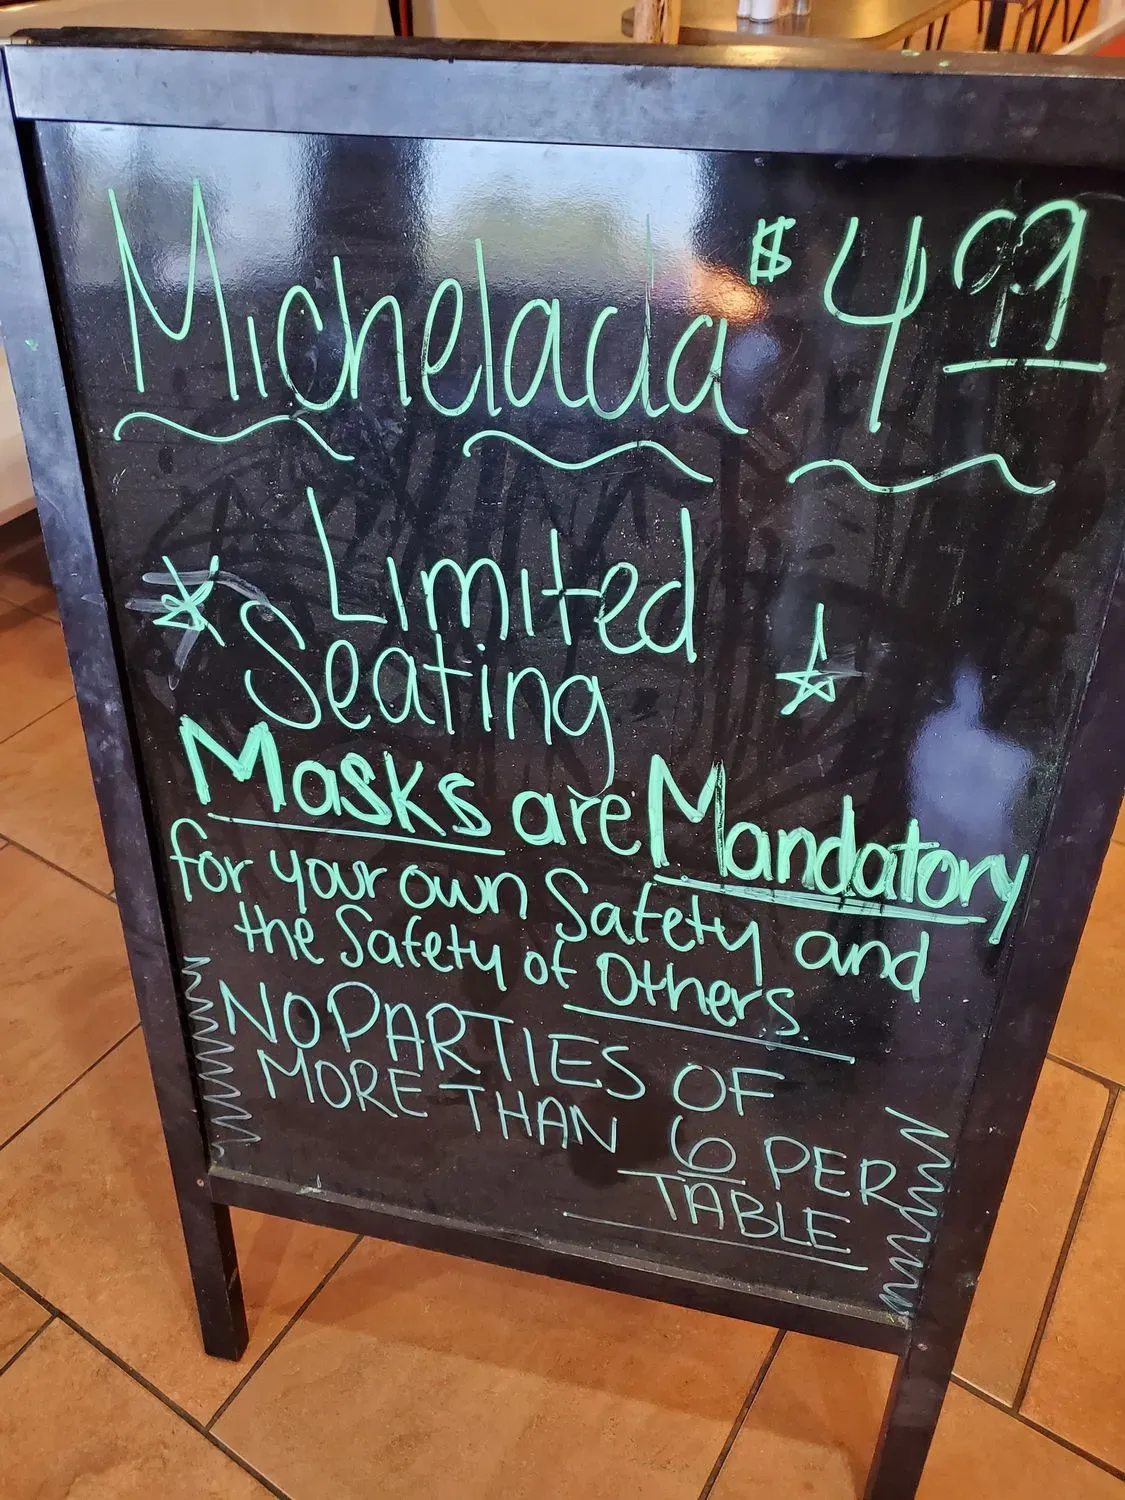 Michelada $4.99
Limited
Seating
Masks are Mandatory
for your own Safety and
the Safety of Others.
NO PARTIES OF
MORE THAN 6 PER
TABLE